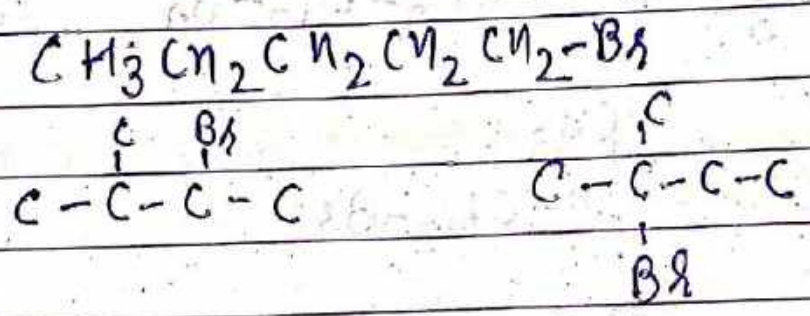 CH3CH2CH2CH2CH2-Br
C Br C
C-C-C-C C-C-C-C
Br